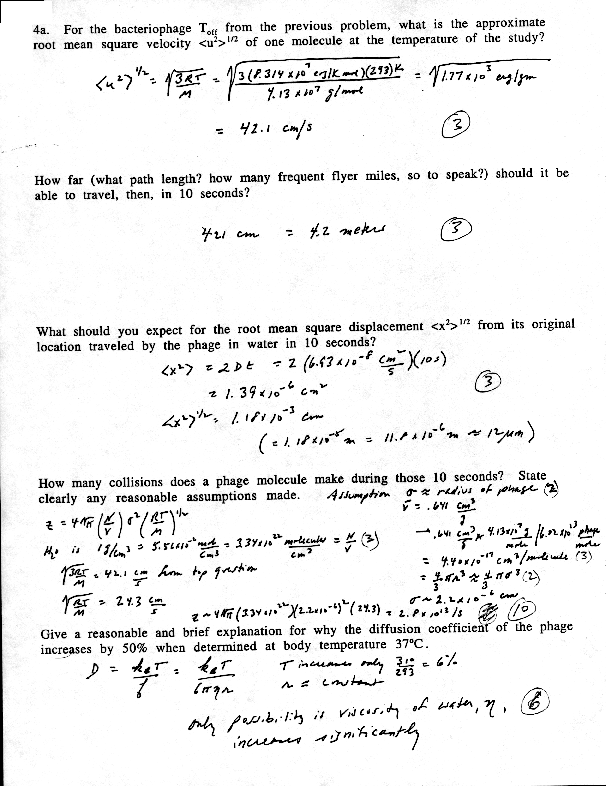 4a. For the bacteriophage T_off from the previous problem, what is the approximate
root mean square velocity <u²>^1/2 of one molecule at the temperature of the study?
<u²>^1/2 = √(3RT/M) = √(3(8.314 x 10^7 erg/K mol)(293)K / 4.13 x 10^7 g/mol) = √(1.77 x 10^3 erg/gm)
= 42.1 cm/s (3)
How far (what path length? how many frequent flyer miles, so to speak?) should it be
able to travel, then, in 10 seconds?
421 cm = 4.2 meters (3)
What should you expect for the root mean square displacement <x²>^1/2 from its original
location traveled by the phage in water in 10 seconds?
<x²> = 2Dt = 2 (6.93 x 10^-8 cm²/s)(10s)
= 1.39 x 10^-6 cm² (3)
<x²>^1/2 = 1.18 x 10^-3 cm
(= 1.18 x 10^-5 m = 11.8 x 10^-6 m ≈ 12 μm)
How many collisions does a phage molecule make during those 10 seconds? State
clearly any reasonable assumptions made. Assumption σ ≈ radius of phage (2)
z = 4√π (N/V) σ² (RT/M)^1/2 v̄ = .641 cm³/g
→ .641 cm³/g x 4.13x10^7 g/mole / 6.02 x10^23 phage/mole
H₂O is 1g/cm³ = 5.56x10^-2 mol/cm³ = 3.34x10^22 molecules/cm³ = N/V (3)
= 4.40x10^-17 cm³/molecule (3)
√(3RT/M) = 42.1 cm/s from top question
= 4/3 πr³ ≈ 4/3 πσ³ (2)
√(RT/M) = 24.3 cm/s σ ~ 2.2x10^-6 cm
z ~ 4√π (3.34x10^22)(2.2x10^-6)² (24.3) = 2.8x10^13/s (10)
Give a reasonable and brief explanation for why the diffusion coefficient of the phage
increases by 50% when determined at body temperature 37°C.
D = k_BT/f = k_BT/6πηr T increases only 310/293 = 6%
r = constant
only possibility is viscosity of water, η, (6)
increases significantly